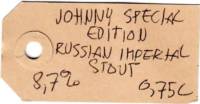 JOHNNY SPECIAL
EDITION
RUSSIAN IMPERIAL
STOUT
8,7% 0,75C